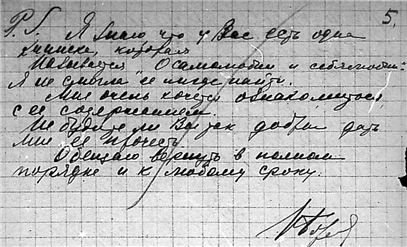 5.
P.S. Я знаю что у Вас есть одна
книжка, которая
называется О самолюбии и себялюбии.
Я не смогла её нигде найти.
Мне очень хочется ознакомиться
с её содержанием.
Не будете ли Вы так добры дать
мне её прочесть
Обещаю вернуть в полном
порядке и к любому сроку.